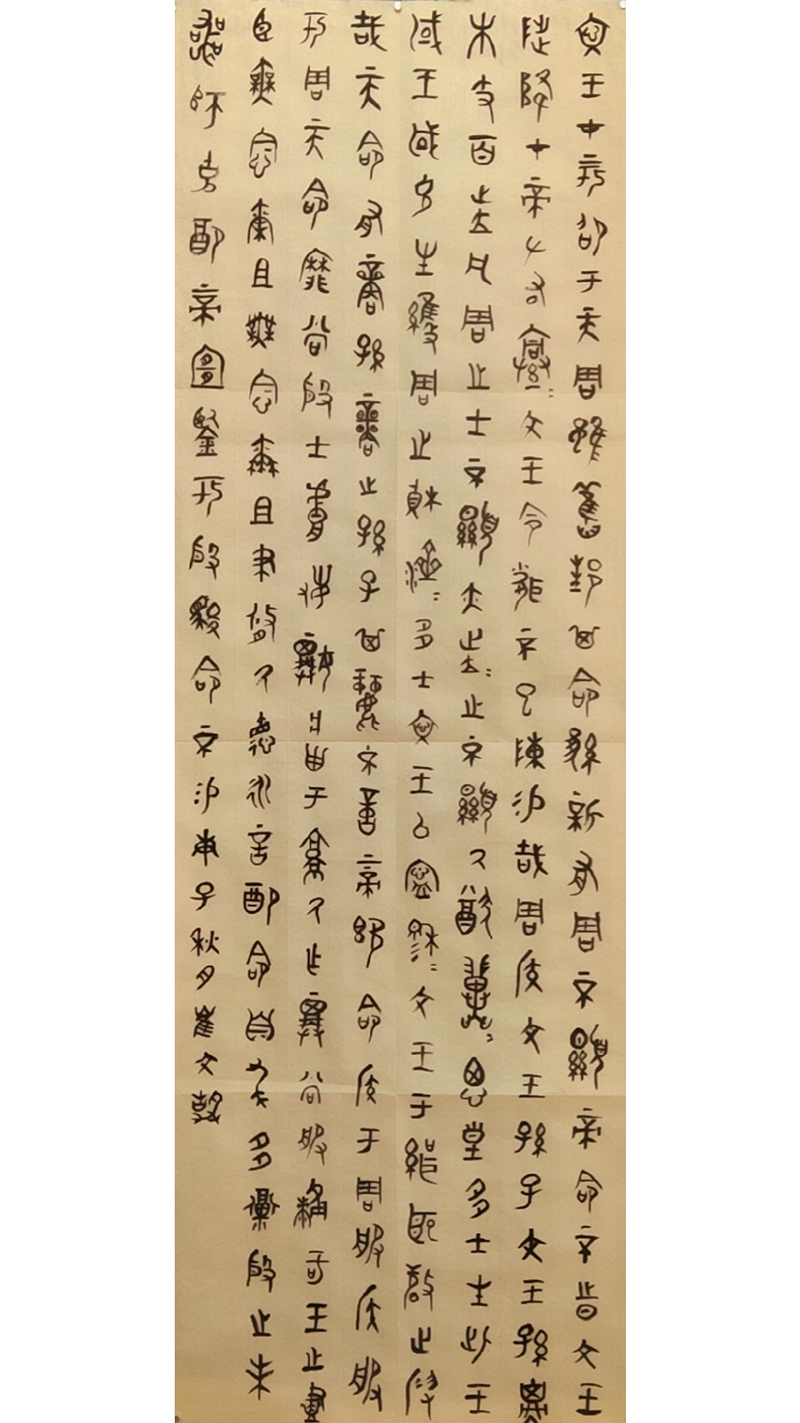 文王才上卲于天周雖舊邦其命維新有周不顯帝命不時文王
陟降才帝左右亹=文王令聞不已陳錫哉周侯文王孫子文王孫子
本支百世凡周之士不顯亦世=之不顯厥猶翼=思皇多士生此王
國王國克生維周之楨濟=多士文王以寧穆=文王于緝熙敬止假
哉天命有商孫子商之孫子其麗不億上帝既命侯于周服侯服
于周天命靡常殷士膚敏祼將于京厥作祼將常服黼冔王之藎
臣無念爾祖無念爾祖聿修厥德永言配命自求多福殷之未
喪師克配上帝宜鑒于殷駿命不易庚子秋月崔文